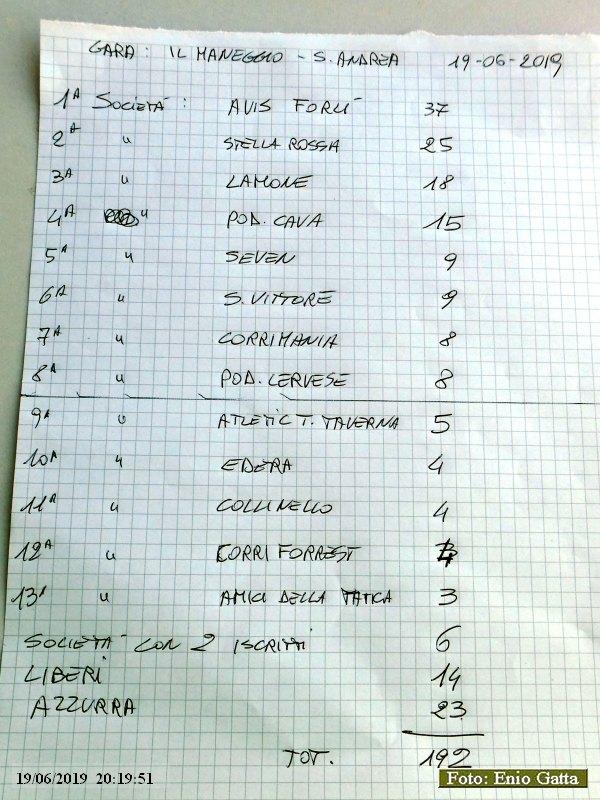 GARA: IL MANEGGIO - S. ANDREA 19-06-2019
1A SOCIETÀ: AVIS FORLÌ 37
2A " STELLA ROSSA 25
3A " LAMONE 18
4A " POD. CAVA 15
5A " SEVEN 9
6A " S. VITTORE 9
7A " CORRIMANIA 8
8A " POD. CERVESE 8
9A " ATLETIC T. TAVERNA 5
10A " EDERA 4
11A " COLLINELLO 4
12A " CORRI FORREST 4
13A " AMICI DELLA 3
SOCIETÀ CON 2 ISCRITTI 6
LIBERI 14
AZZURRA 23
TOT. 192
19/06/2019 20:19:51
Foto: Enio Gatta